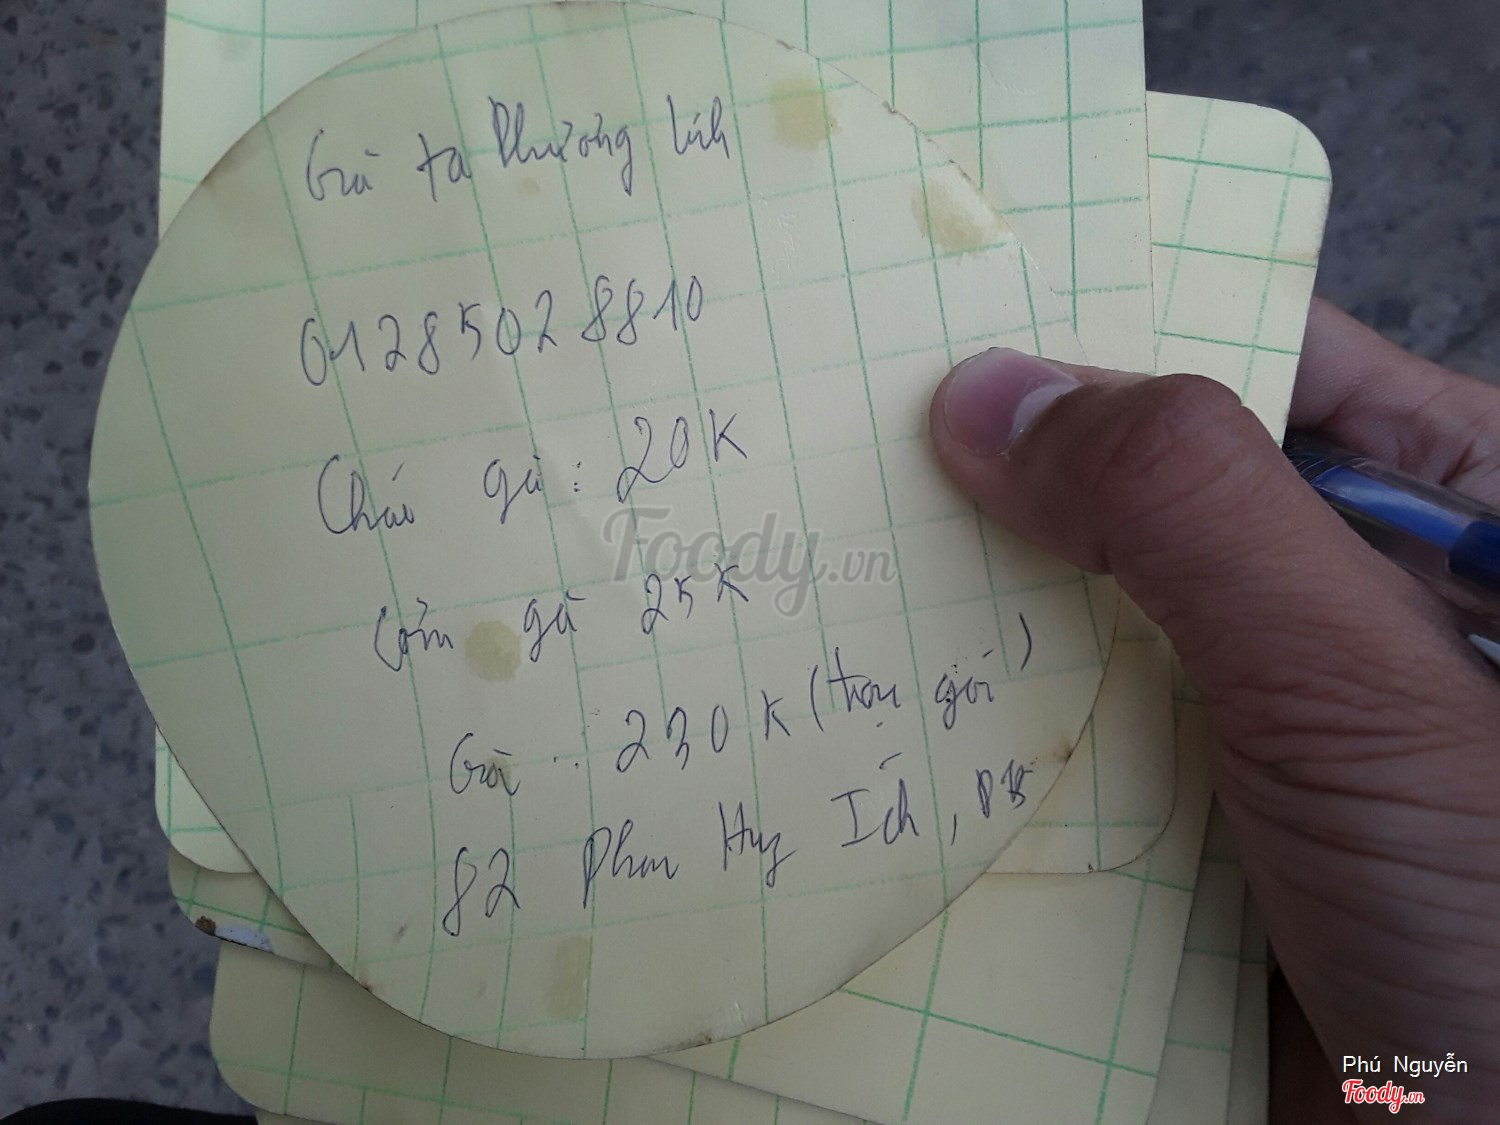 Gà ta Phương Linh
01285028810
Cháo gà: 20K
Cơm gà 25K
Foody.vn
Gà : 230K (trọn gói)
82 Phan Huy Ích,
Phú Nguyễn
Foody.vn